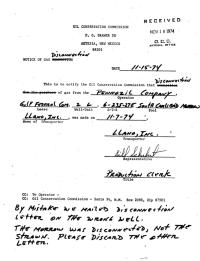 RECEIVED
NOV 18 1974
O. C. C.
ARTESIA, OFFICE
OIL CONSERVATION COMMISSION
P. O. DRAWER DD
ARTESIA, NEW MEXICO
88210
Disconnection
NOTICE OF GAS
DATE 11-15-74
This is to notify the Oil Conservation Commission that disconnection
of gas from the PENNZOIL COMPANY
Operator
GULF FEDERAL COM. 2 L 6-23S-27E South CARLSBAD MORROW
Lease Well-Unit S-T-R Pool
LLANO, INC. was made on 11-7-74
Name of Transporter
LLANO, INC.
Transporter
Representative
PRODUCTION CLERK
Title
CC: To Operator -
CC: Oil Conservation Commission - Santa Fe, N.M. Box 2088, Zip 87501
BY MISTAKE WE MAILED DISCONNECTION
LETTER ON THE WRONG WELL.
THE MORROW WAS DISCONNECTED, NOT THE
STRAWN. PLEASE DISCARD THE OTHER
LETTER.